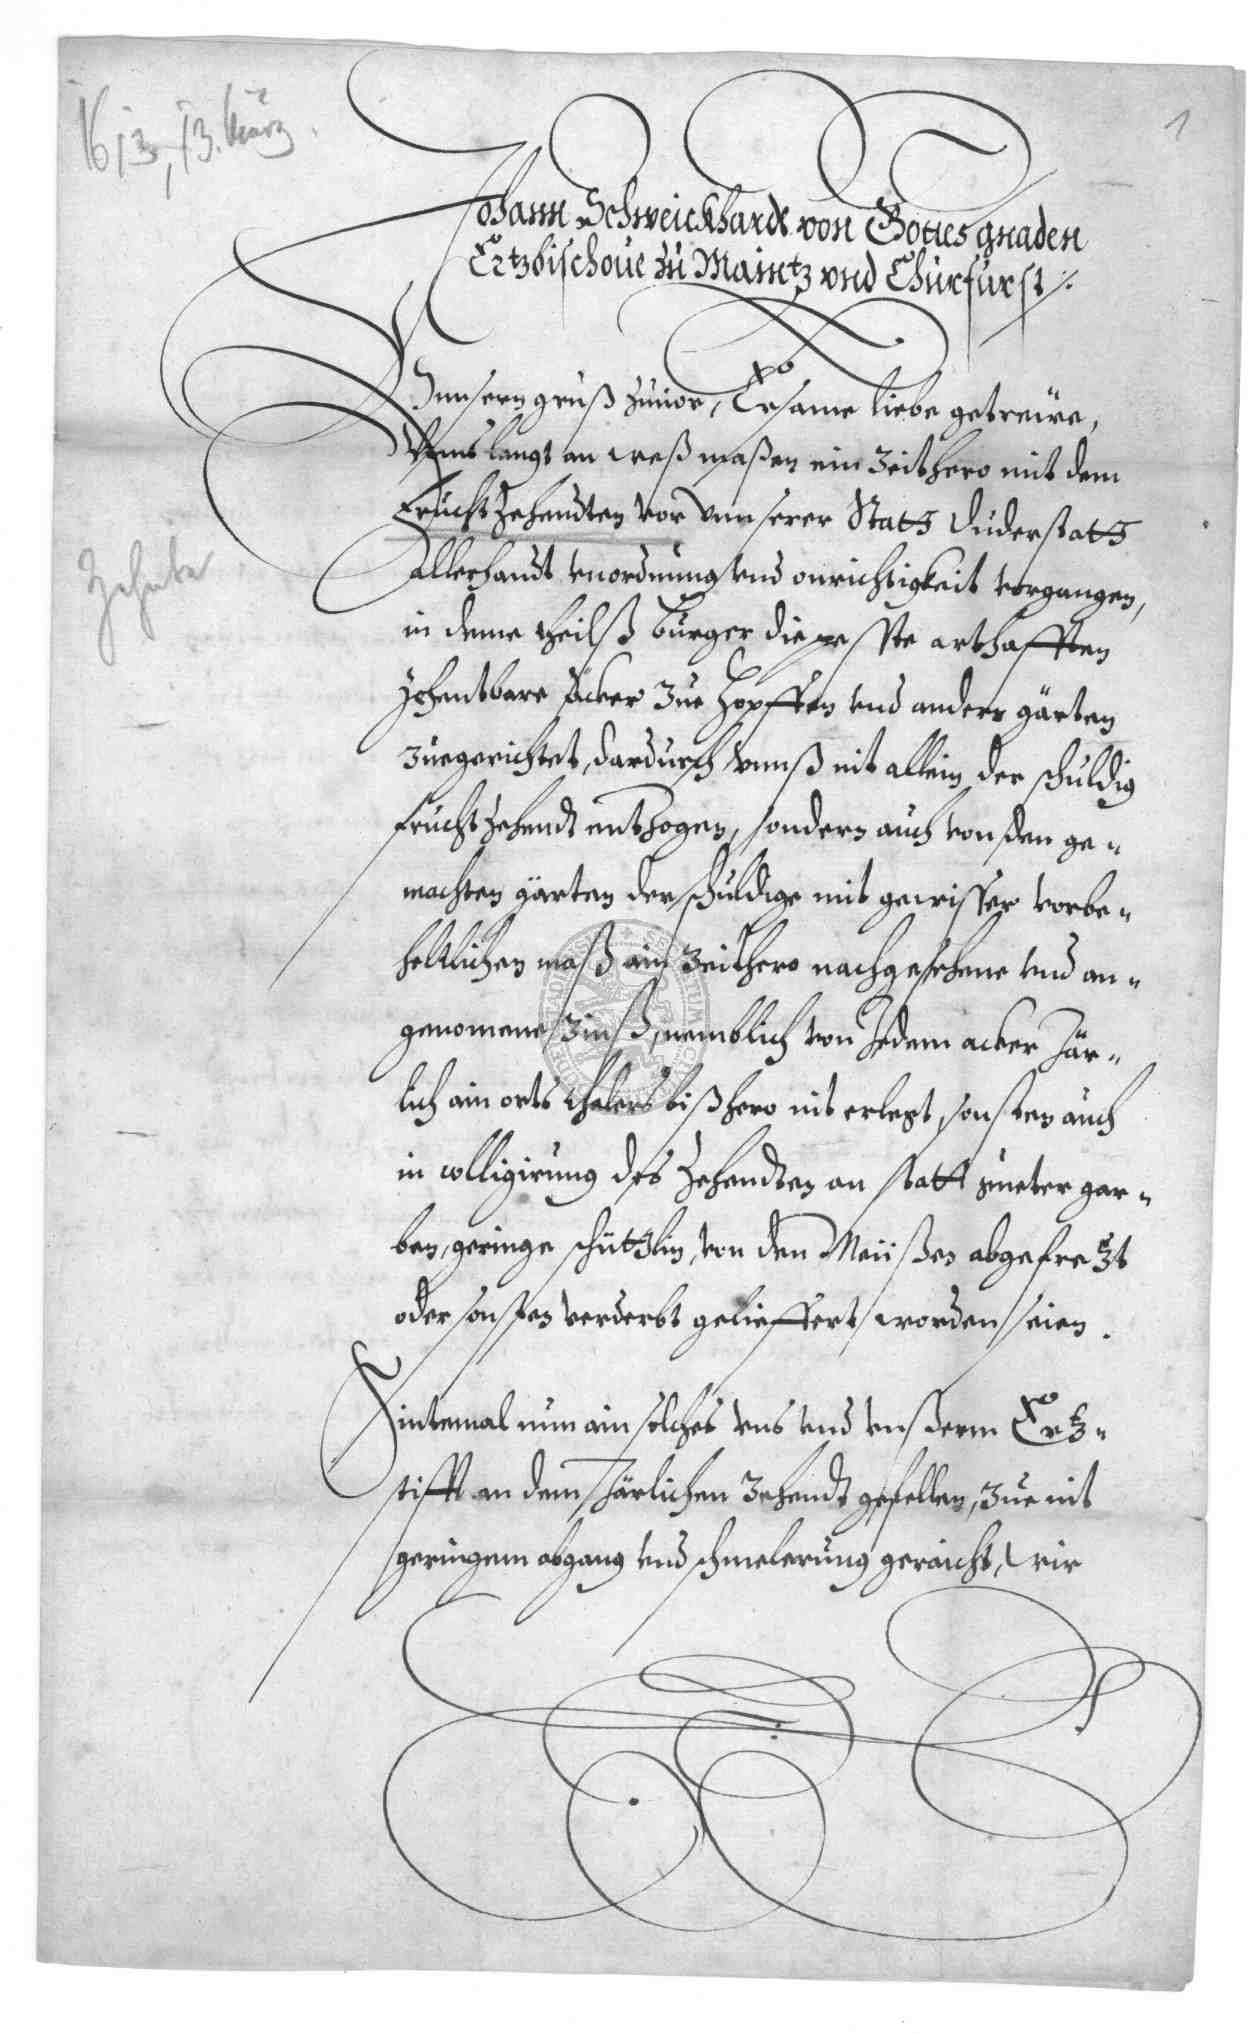 1613, 13. März.
1
Johann Schweickhardt von Gottes gnaden
Ertzbischoue zu Maintz vnd Churfürst /.
Vnnsern gruß zuuor, Ersame liebe getrewe,
Vnns langt an weß maßen ein Zeithero mit dem
Fruchtzehendten vor vnnserer Statt Duderstatt
Zehnte
allerhandt vnordnung vnd vnrichtigkeit vorgangen,
in deme theilß burger die peste arthafften
zehentbare äcker zue hopffen vnd andern gärten
zuegerichtet, dardurch vnnß nit allein der schuldig
fruchtzehendt enthzogen, sondern auch von den ge-
machten gärten der schuldige mit gewisser vorbe-
heltlichen maß ain Zeithero nachgesehene vnd an-
genomene Zinß, nemblich von Jedem acker Jär-
lich ain orts thalers bißhero nit erlegt, sonsten auch
in colligirung des Zehendten an statt gueter gar-
ben, geringe schützlin, von den Meüßen abgefretzt
oder sonsten verderbt gelieffert worden seien.
Sintemal nun ain solches vns vnd vnßerm Ertz-
stifft an dem Järlichen Zehendt gefellen, zue nit
geringem abgang vnd schmelerung geraicht, wir